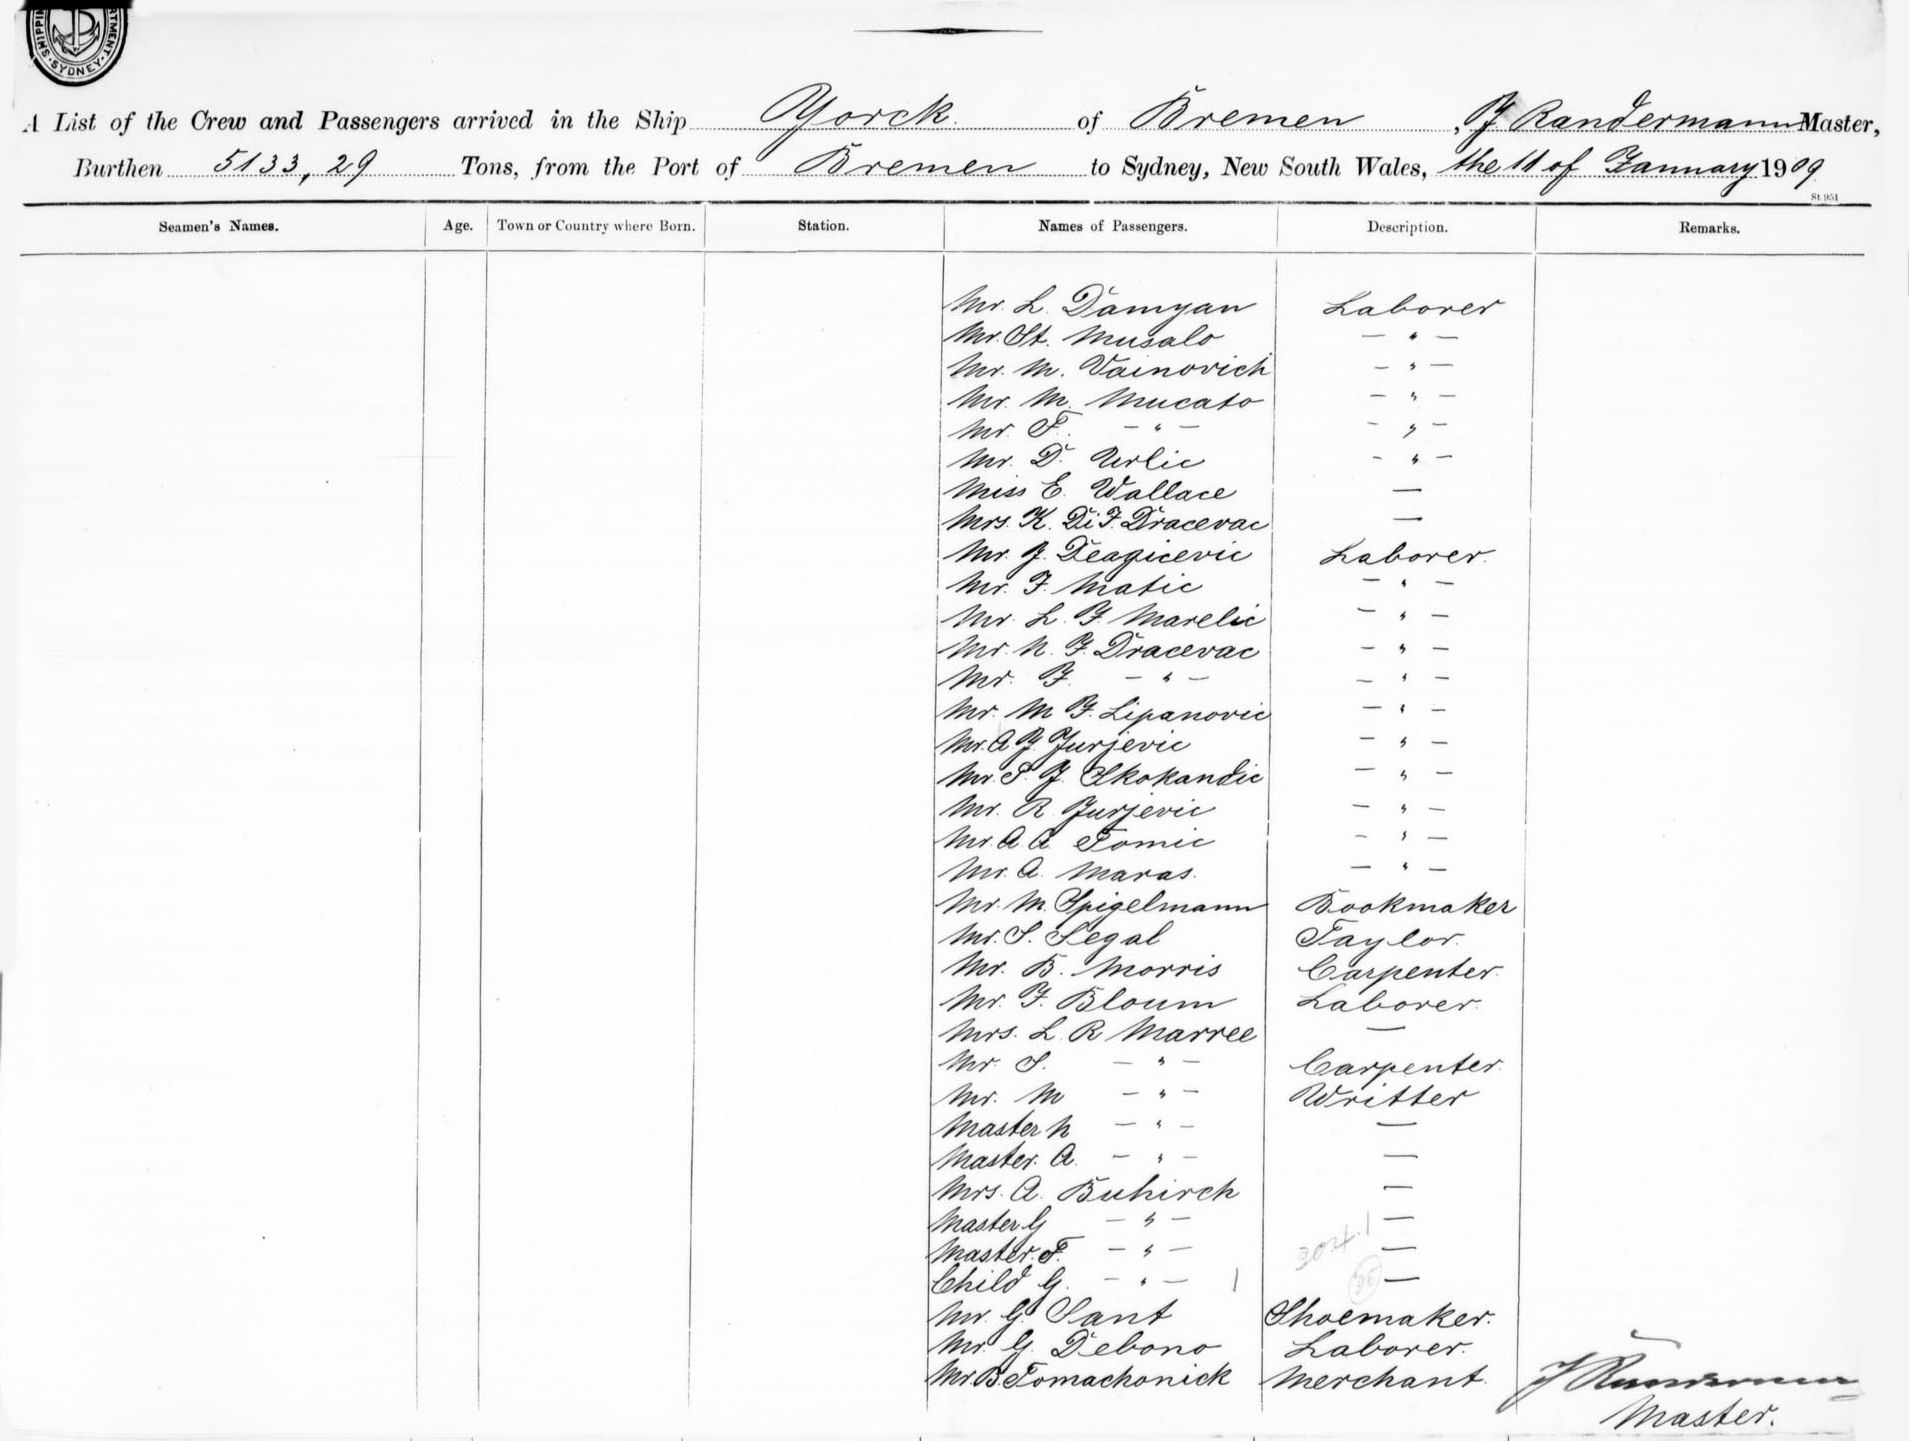 SHIPPING DEPARTMENT. SYDNEY.
A List of the Crew and Passengers arrived in the Ship Yorck. of Bremen, J Randermann Master,
Burthen 5133,29 Tons, from the Port of Bremen to Sydney, New South Wales, the 11 of January 1909
St 951
Seamen's Names. Age. Town or Country where Born. Station. Names of Passengers. Description. Remarks.
Mr. L. Damyan Laborer
Mr. St. Musalo — " —
Mr. M. Vainovich — " —
Mr. M. Mucato — " —
Mr. F. — " — — " —
Mr. D. Urlic — " —
Miss E. Wallace —
Mrs. K. Di J. Dracevac —
Mr. J. Deagicevic Laborer.
Mr. J. Matic — " —
Mr. L. J. Marelic — " —
Mr. N. J. Dracevac — " —
Mr. J. — " — — " —
Mr. M J. Lipanovic — " —
Mr. A. J. Jurjevic — " —
Mr. S. J. Skokandic — " —
Mr. R. Jurjevic — " —
Mr. A. A. Tomic — " —
Mr. A. Maras. — " —
Mr. M. Spigelmann Bookmaker
Mr. S. Segal Taylor.
Mr. B. Morris Carpenter.
Mr. J. Bloum Laborer.
Mrs. L. R Marree —
Mr. S. — " — Carpenter.
Mr. M — " — Writter
Master N — " — —
Master. A. — " — —
Mrs. A. Buhirch —
Master G — " — —
Master. F. — " — —
Child G. — " — —
Mr. G. Sant Shoemaker.
Mr. G. Debono Laborer.
Mr. B. Tomachonick Merchant.
J Randermann
Master.